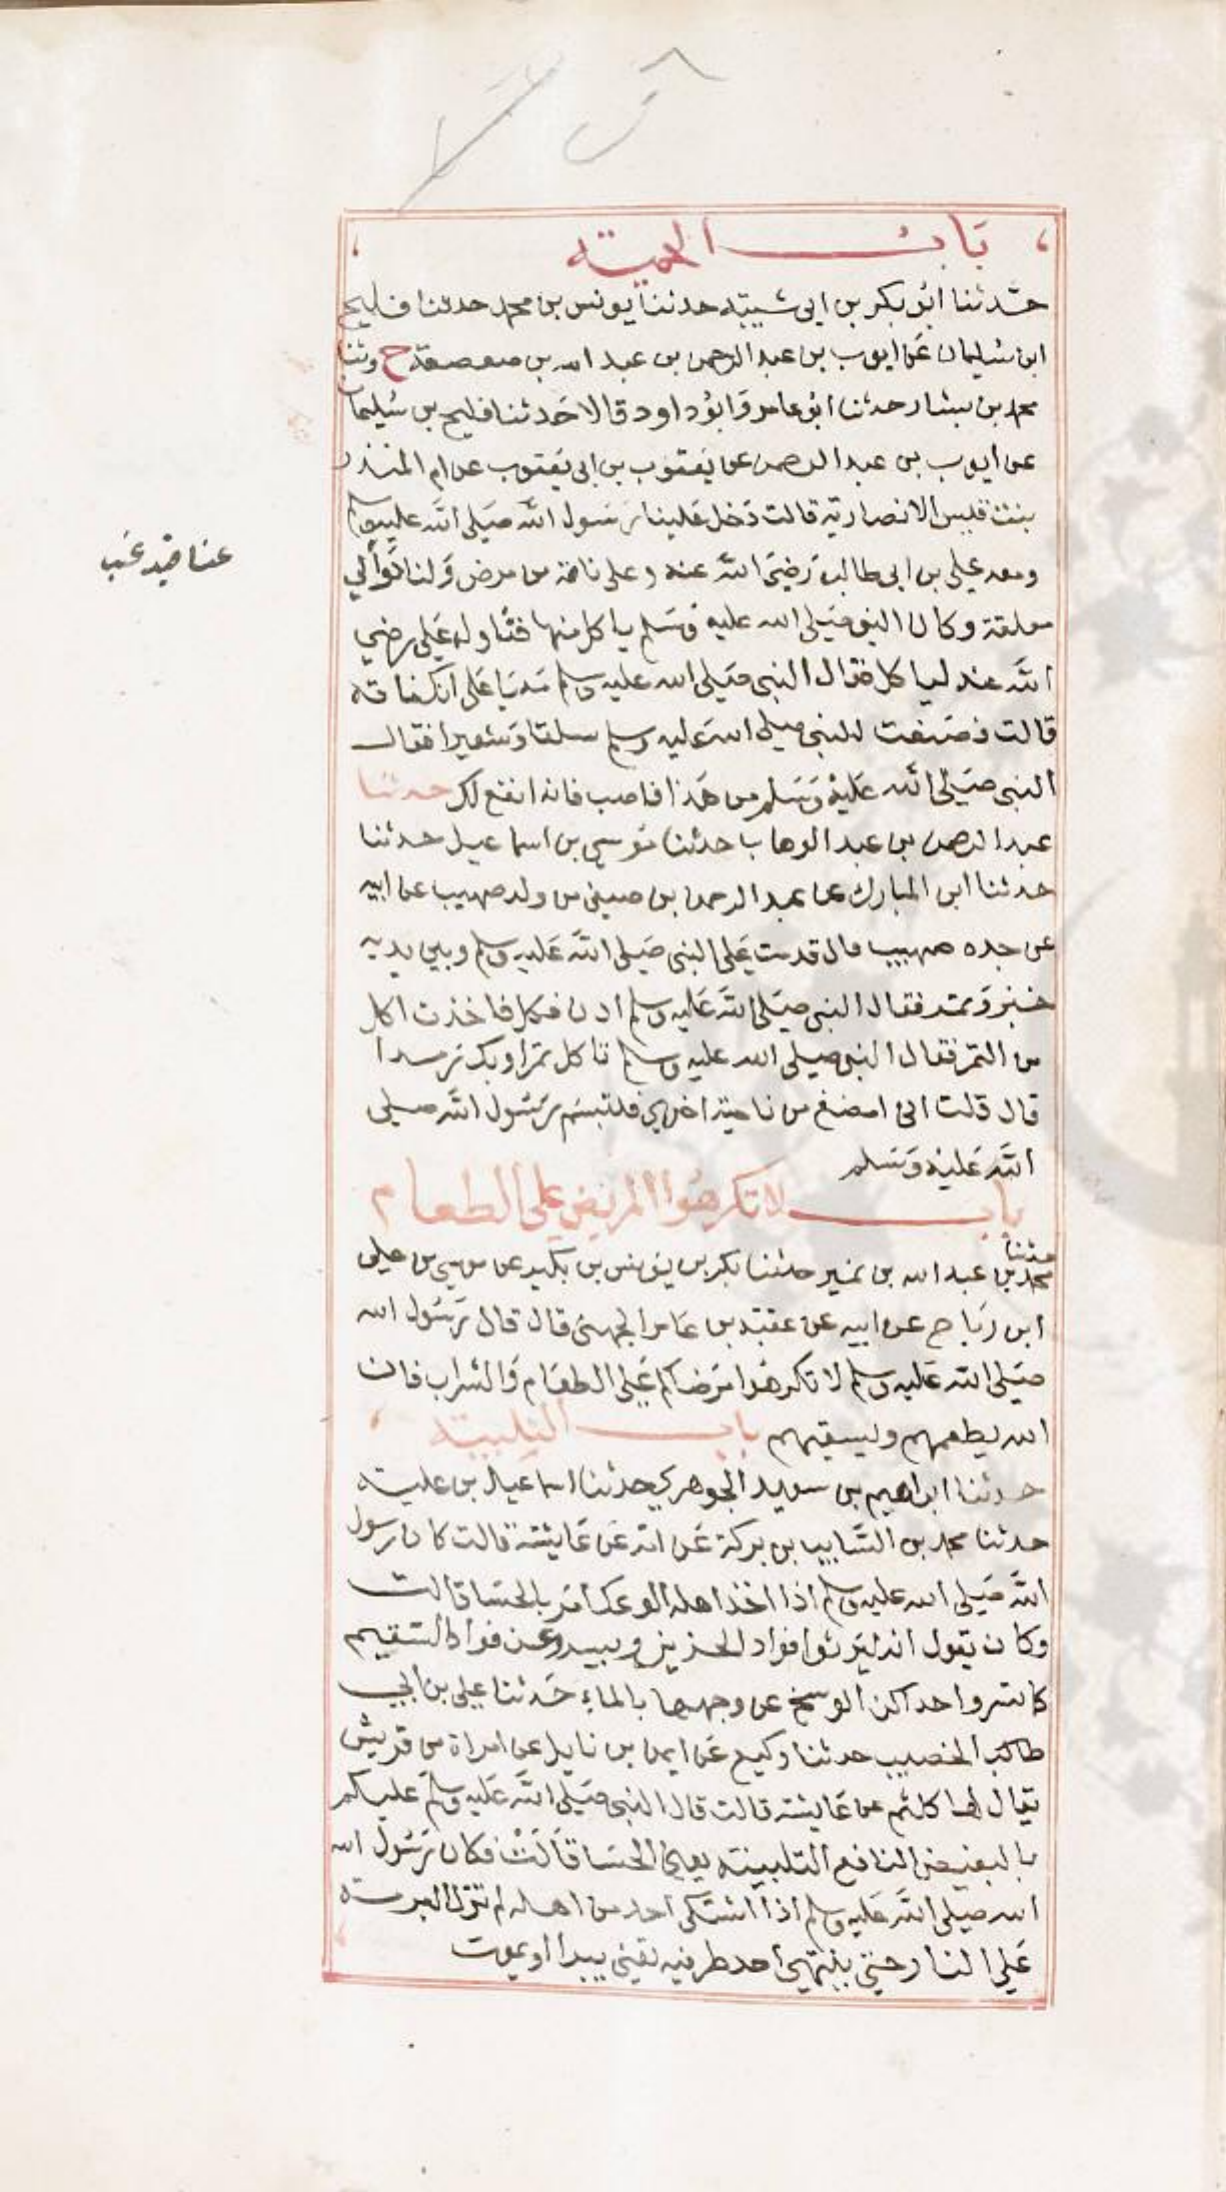 باب الحمية
حدثنا ابو بكر بن ابي شيبة حدثنا يونس بن محمد حدثنا فليح
ابن سليمان عن ايوب بن عبد الرحمن بن عبد الله بن صعصعة ح وثنا
محمد بن بشار حدثنا ابو عامر وابو داود قالا حدثنا فليح بن سليمان
عن ايوب بن عبد الرحمن عن يعقوب بن ابي يعقوب عن ام المنذر
بنت قيس الانصارية قالت دخل علينا رسول الله صلى الله عليه وسلم
ومعه علي بن ابي طالب رضي الله عنه وعلي ناقه من مرض ولنا دوالي
عناقيد عنب
معلقة وكان النبي صلى الله عليه وسلم ياكل منها فتناوله علي رضي
الله عنه لياكل فقال النبي صلى الله عليه وسلم مه يا علي انك ناقه
قالت فصنعت للنبي صلى الله عليه وسلم سلقا وشعيرا فقال
النبي صلى الله عليه وسلم من هذا فاصب فانه انفع لك حدثنا
عبد الرحمن بن عبد الوهاب حدثنا موسى بن اسماعيل حدثنا
حدثنا ابن المبارك عن عبد الرحمن بن صيفي من ولد صهيب عن ابيه
عن جده صهيب قال قدمت على النبي صلى الله عليه وسلم وبين يديه
خبز وتمر فقال النبي صلى الله عليه وسلم ادن فكل فاخذت اكل
من التمر فقال النبي صلى الله عليه وسلم تاكل تمرا وبك رمد ا
قال قلت اني امضغ من ناحية اخرى فلتبسم رسول الله صلى
الله عليه وسلم
باب لا تكرهوا المريض على الطعام
حدثنا
محمد بن عبد الله بن نمير حدثنا بكر بن يونس بن بكير عن موسى بن علي
ابن رباح عن ابيه عن عقبة بن عامر الجهني قال قال رسول الله
صلى الله عليه وسلم لا تكرهوا مرضاكم على الطعام والشراب فان
الله يطعمهم ويسقيهم باب التلبينة
حدثنا ابراهيم بن سعيد الجوهري حدثنا اسماعيل بن علية
حدثنا محمد بن السايب بن بركة عن امه عن عايشة قالت كان رسول
الله صلى الله عليه وسلم اذا اخذ اهله الوعك امر بالحسا قالت
وكان يقول انه ليرتوا فواد الحزين ويسرو عن فواد السقيم
كما تسروا احداكن الوسخ عن وجهها بالماء حدثنا علي بن ابي
طالب الخصيب حدثنا وكيع عن ايمن بن نايل عن امراة من قريش
يقال لها كلثم عن عايشة قالت قال النبي صلى الله عليه وسلم عليكم
بالبغيض النافع التلبينة يعني الحسا قالت فكان رسول الله
الله صلى الله عليه وسلم اذا اشتكى احد من اهله لم تزل البرمة
على النار حتى ينتهي احد طرفيه يعني يبرا او يموت